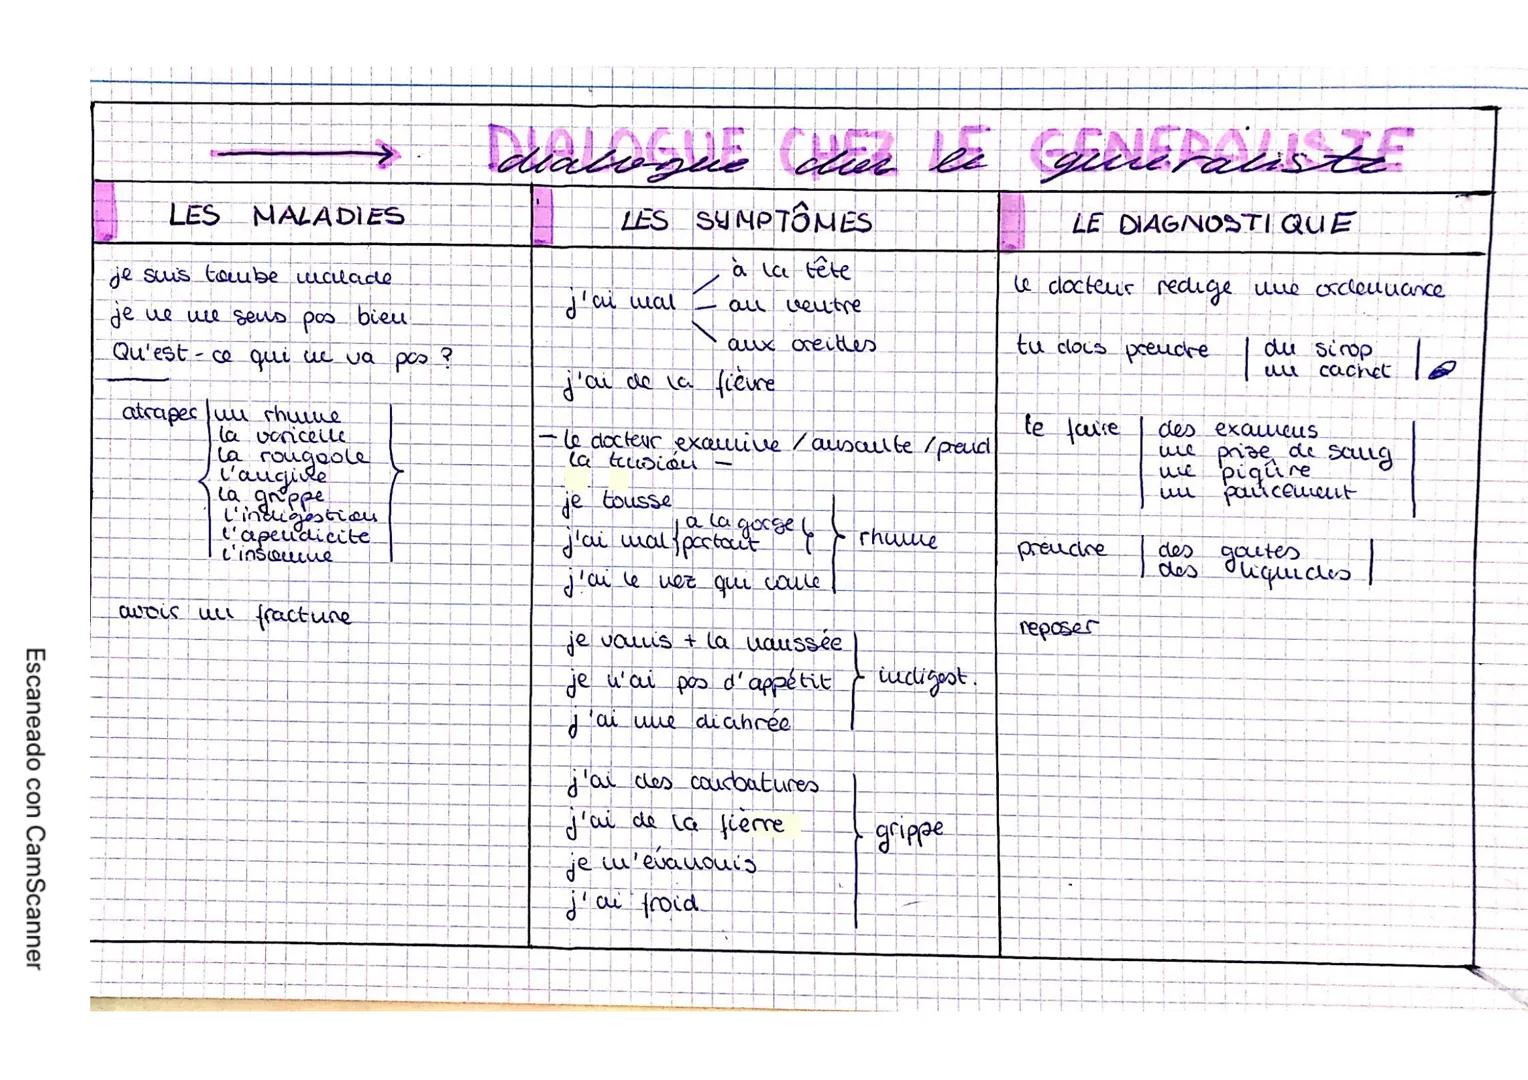 DIALOGUE CHEZ LE GENERALISTE
dialogue chez le generaliste
LES MALADIES
je suis tombe malade
je ne me sens pas bien
Qu'est-ce qui ne va pas ?
atraper un rhume
la varicelle
la rougeole
l'angine
la grippe
l'indigestion
l'apendicite
l'insomne
avoir un fracture
LES SYMPTÔMES
j'ai mal
à la tête
au ventre
aux oreilles
j'ai de la fièvre
- le docteur examine / ausculte / prend
la tensión -
je tousse
j'ai mal
a la gorge
partout
j'ai le nez qui coule
rhume
je vomis + la naussée
je n'ai pas d'appétit
j'ai une diahrée
indigest.
j'ai des courbatures
j'ai de la fièrre
je m'évanouis
j'ai froid
grippe
LE DIAGNOSTIQUE
le docteur redige une ordonnance
tu dois prendre
du sirop
un cachet
te faire
des examens
une prise de sang
une piqûre
un pancement
prendre
des goutes
des liquides
reposer
Escaneado con CamScanner